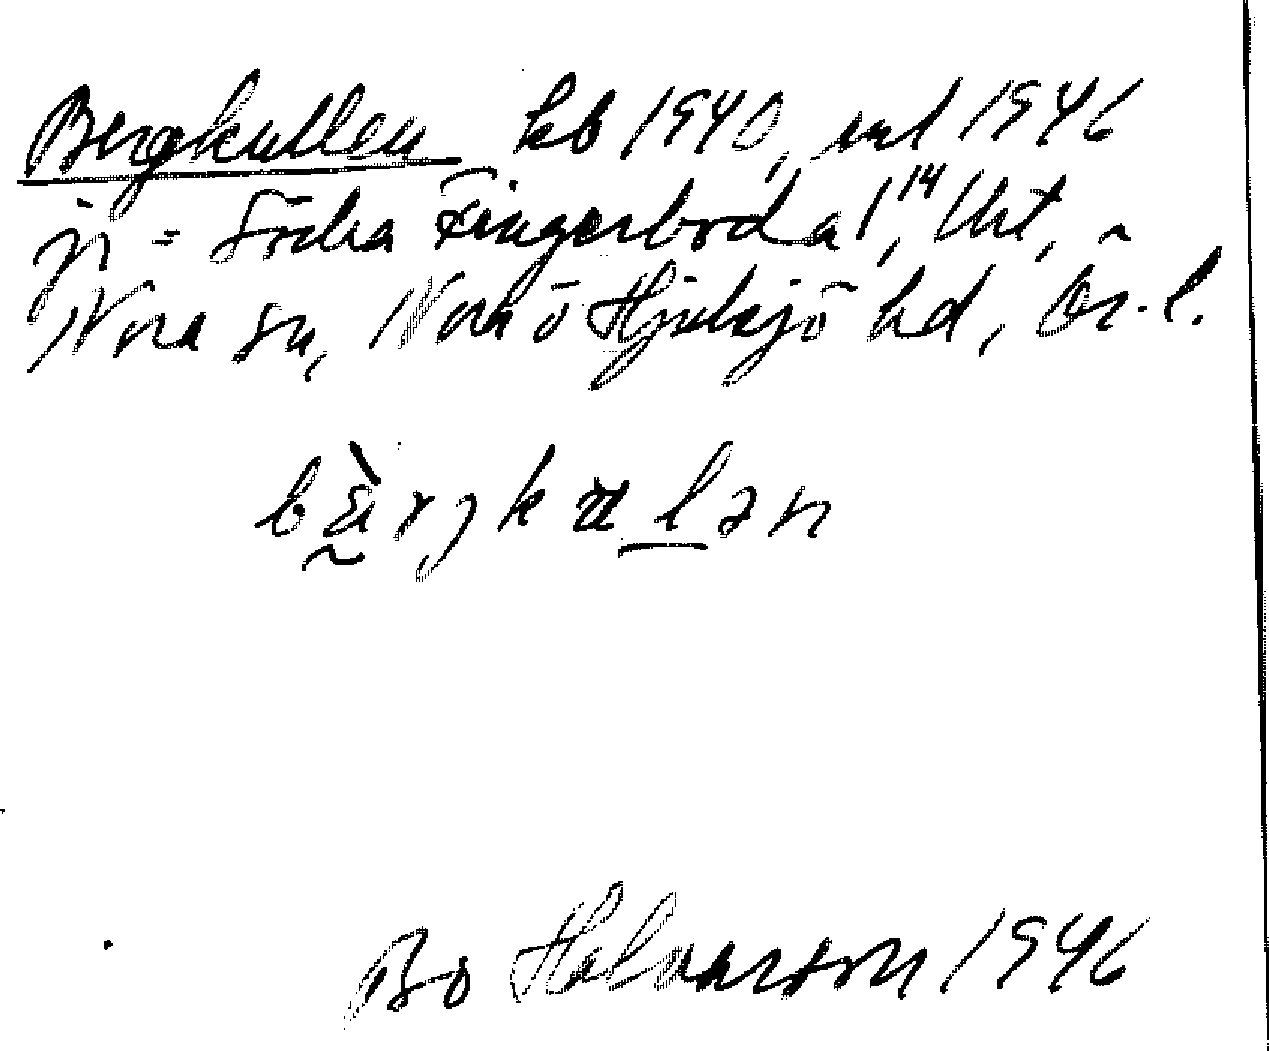 Bergkullen kb 1940, url 1946
jr = Södra Fingerboda 1¹⁴, Uht,
Nora sn, Nora ö Hjulsjö hd, Ör. l.
bæ̀rjkulən
Bo Halvarson 1946